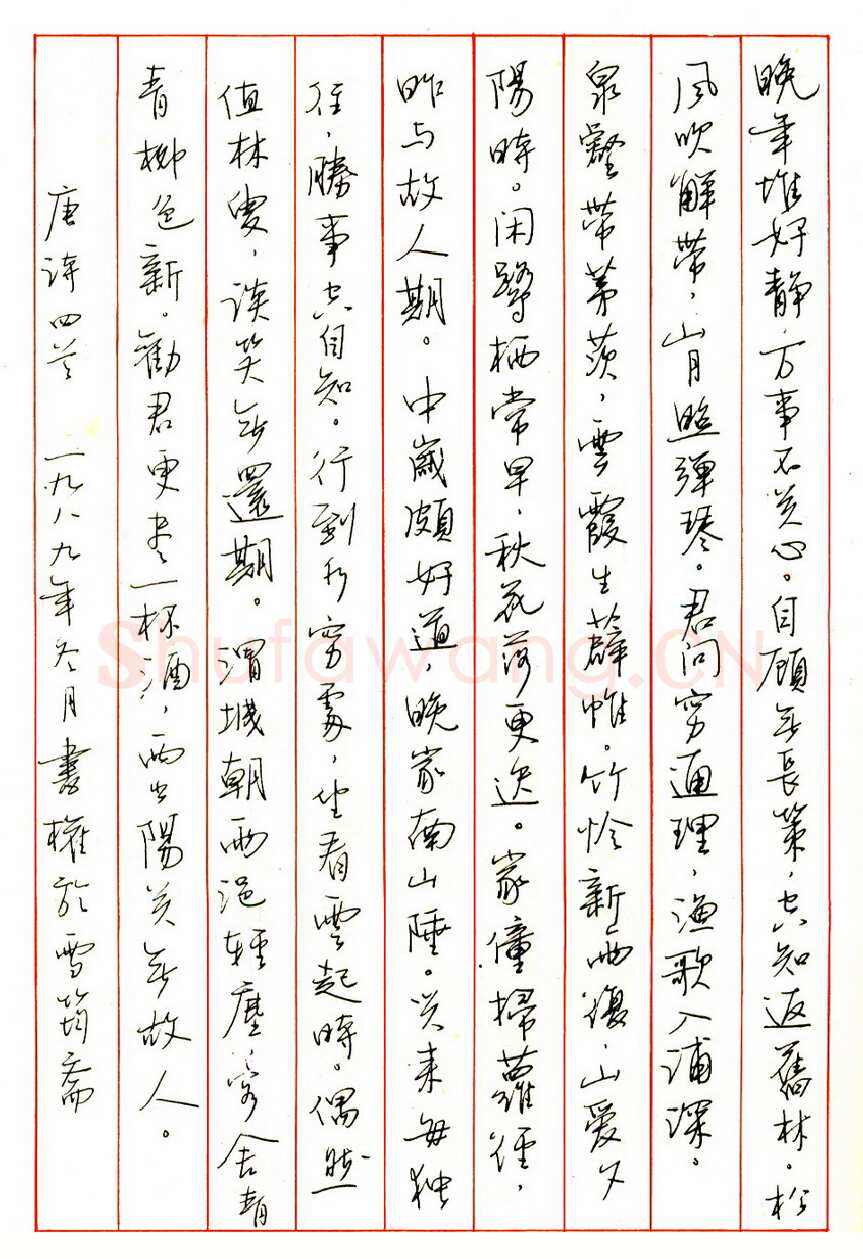 晚年惟好静，万事不关心。自顾无長策，空知返舊林。松
风吹解带，山月照弹琴。君问穷通理，渔歌入浦深。
泉壑带茅茨，雲霞生薜帷。竹怜新雨後，山爱夕
陽時。闲鹭栖常早，秋花落更迟。家僮掃蘿径，
昨与故人期。中歲頗好道，晚家南山陲。兴来每独
往，勝事空自知。行到水穷處，坐看雲起時。偶然
值林叟，谈笑无還期。渭城朝雨浥轻塵，客舍青
青柳色新。勸君更尽一杯酒，西出陽关无故人。
唐诗四首 一九八九年冬月書權於雪筠斋
Shufawang.CN